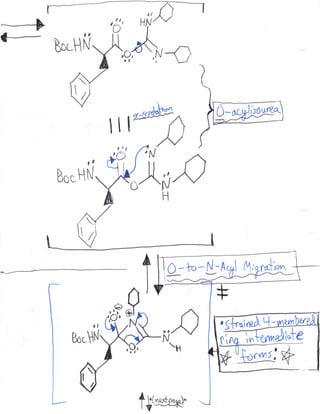 HN
BocHN
O
O
N
σ-rotation
O-acylisourea
N
O
BocHN
O
N
H
O-to-N-Acyl Migration
‡
O
N
BocHN
O
N
H
• strained 4-membered
ring intermediate
forms:
*(next page)*